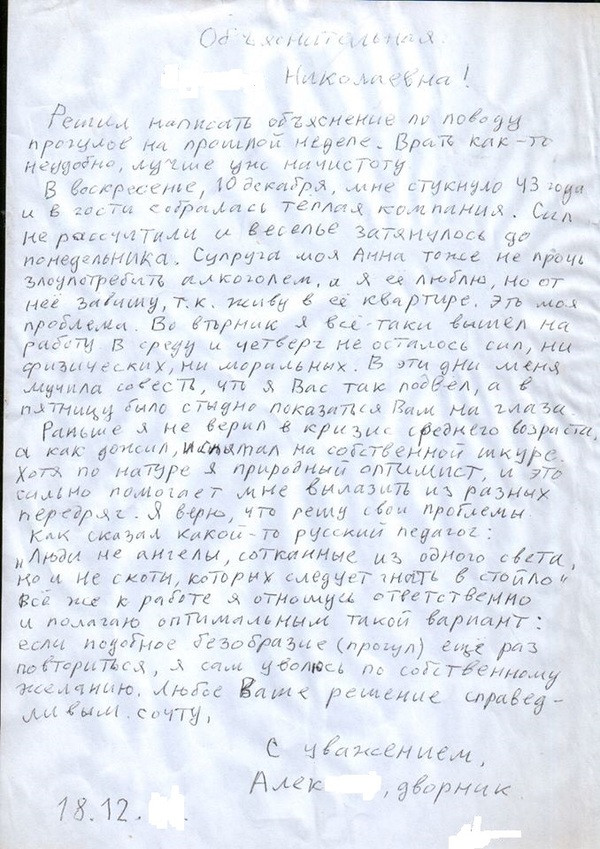 Объяснительная.
Николаевна!
Решил написать объяснение по поводу
прогулов на прошлой неделе. Врать как-то
неудобно, лучше уж начистоту
В воскресенье, 10 декабря, мне стукнуло 43 года
и в гости собралась теплая компания. Сил
не рассчитали и веселье затянулось до
понедельника. Супруга моя Анна тоже не прочь
злоупотребить алкоголем, а я её люблю, но от
неё завишу, т.к. живу в её квартире. Это моя
проблема. Во вторник я всё-таки вышел на
работу. В среду и четверг не осталось сил, ни
физических, ни моральных. В эти дни меня
мучила совесть, что я Вас так подвёл, а в
пятницу было стыдно показаться Вам на глаза.
Раньше я не верил в кризис среднего возраста,
а как дожил, испытал на собственной шкуре.
Хотя по натуре я природный оптимист, и это
сильно помогает мне вылазить из разных
передряг. Я верю, что решу свои проблемы.
Как сказал какой-то русский педагог:
„Люди не ангелы, сотканные из одного света,
но и не скоты, которых следует гнать в стойло"
Всё же к работе я отношусь ответственно
и полагаю оптимальным такой вариант:
если подобное безобразие (прогул) ещё раз
повториться, я сам уволюсь по собственному
желанию. Любое Ваше решение справед-
ливым сочту.
С уважением,
Алек , дворник
18.12.